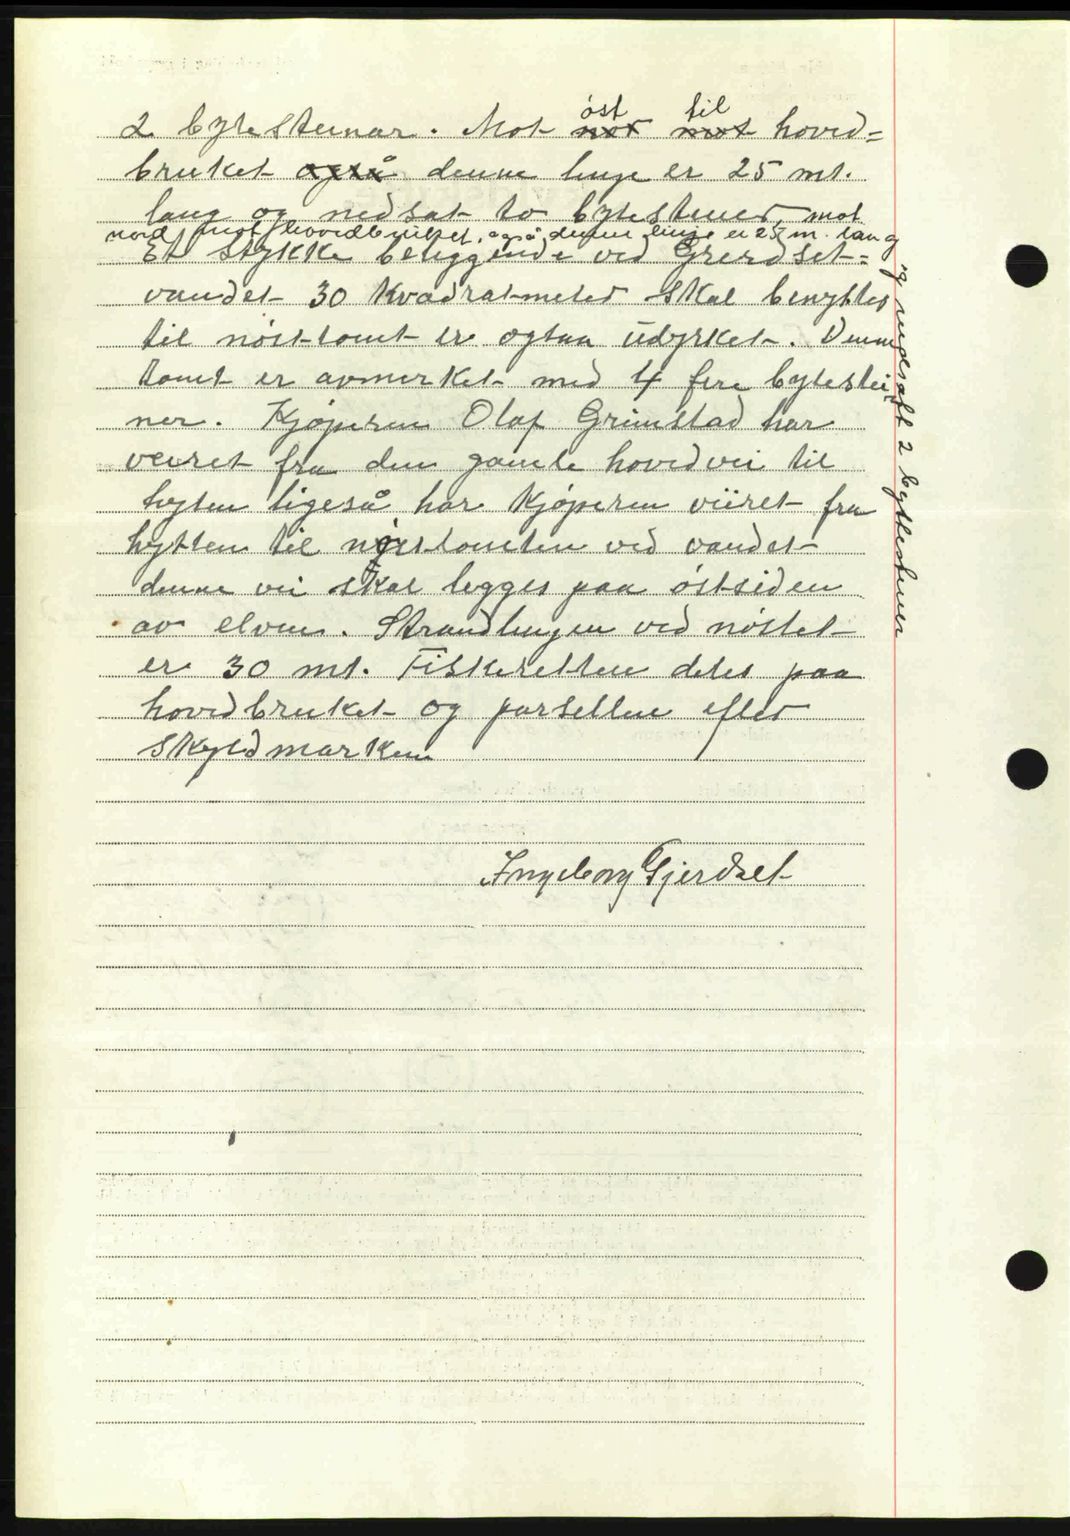 2 bytesteinar. Mot øst til hovid=
bruket også denne linje er 25 mt.
lang og nedsat to bytestener, mot
nord mot hovedbruket, også denne linje er 25 m. lang
og nedsatt 2 byttestener
Et stykke beliggende ved Gjerdset-
vandet 30 Kvadratmeter skal benyttes
til nøst-tomt er ogsaa udyrket. Denne
tomt er avmerket med 4 fire bytestei
ner. Kjøperen Olaf Grimstad har
veiret fra den gamle hovedvei til
hyten ligeså har Kjøperen veiret fra
hytten til nøstetomten ved vandet
denne vei skal legges paa østsiden
av elven. Strandlinjen ved nøstet
er 30 mt. Fiskeretten deles paa
hovedbruket og parsellen efter
Skyldmarken
Ingeborg Gjerdset